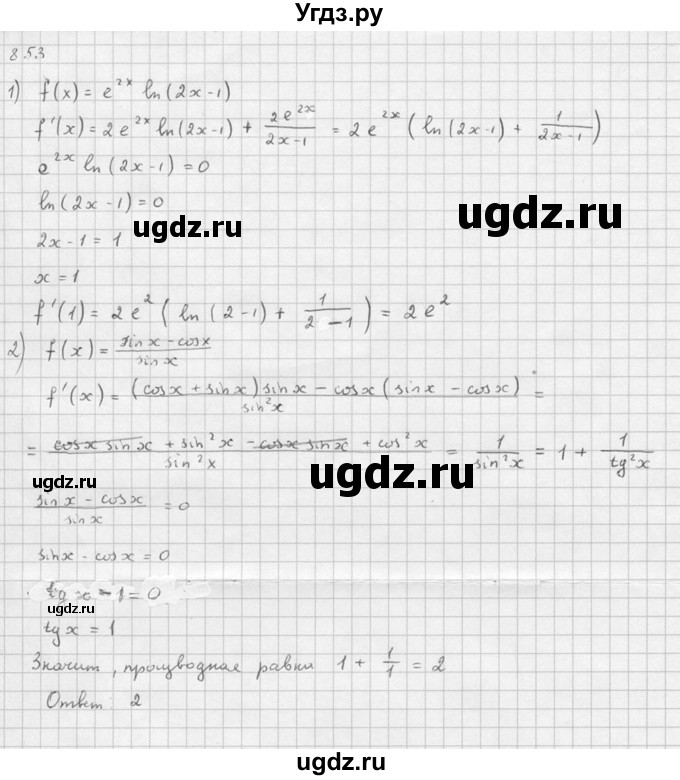 Угдз.ру
853
1) f(x) = e^{2x} ln(2x-1)
f'(x) = 2e^{2x} ln(2x-1) + \frac{2e^{2x}}{2x-1} = 2e^{2x} ( ln(2x-1) + \frac{1}{2x-1} )
e^{2x} ln(2x-1) = 0
ln(2x-1) = 0
ugdz.ru
ugdz.ru
2x-1 = 1
x = 1
f'(1) = 2e^2 ( ln(2-1) + \frac{1}{2-1} ) = 2e^2
2) f(x) = \frac{sin x - cos x}{sin x}
ugdz.ru
f'(x) = \frac{(cos x + sin x) sin x - cos x (sin x - cos x)}{sin^2 x} =
= \frac{cos x sin x + sin^2 x - cos x sin x + cos^2 x}{sin^2 x} = \frac{1}{sin^2 x} = 1 + \frac{1}{tg^2 x}
ugdz.ru
\frac{sin x - cos x}{sin x} = 0
sin x - cos x = 0
tg x - 1 = 0
ugdz.ru
tg x = 1
Значит, производная равна 1 + \frac{1}{1} = 2
Ответ: 2
ugdz.ru